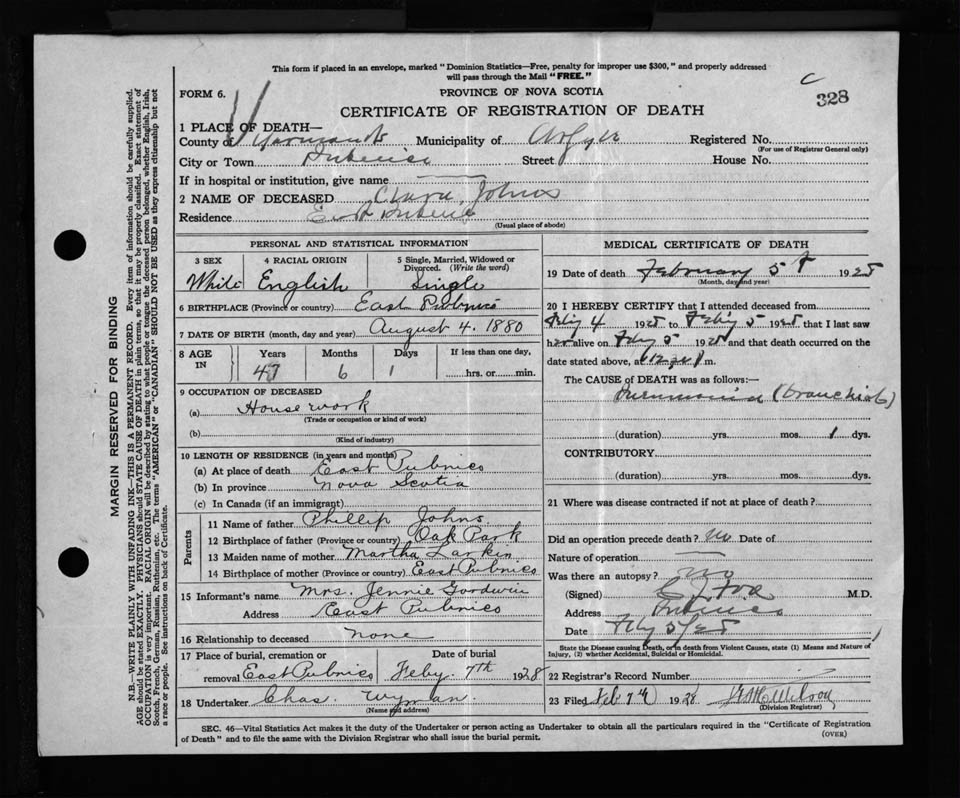 This form if placed in an envelope, marked "Dominion Statistics—Free, penalty for improper use $300," and properly addressed
will pass through the Mail "FREE."
C
328
FORM 6.
PROVINCE OF NOVA SCOTIA
CERTIFICATE OF REGISTRATION OF DEATH
1 PLACE OF DEATH—
County of Yarmouth Municipality of Argyle Registered No.
(For use of Registrar General only)
City or Town Pubnico Street House No.
If in hospital or institution, give name
2 NAME OF DECEASED Clara Johns
Residence East Pubnico
(Usual place of abode)
PERSONAL AND STATISTICAL INFORMATION
3 SEX 4 RACIAL ORIGIN 5 Single, Married, Widowed or Divorced. (Write the word)
White English Single
6 BIRTHPLACE (Province or country) East Pubnico
7 DATE OF BIRTH (month, day and year) August 4. 1880
8 AGE IN Years Months Days If less than one day,
47 6 1 hrs. or min.
9 OCCUPATION OF DECEASED
(a) House work
(Trade or occupation or kind of work)
(b)
(Kind of industry)
10 LENGTH OF RESIDENCE (in years and months)
(a) At place of death East Pubnico
(b) In province Nova Scotia
(c) In Canada (if an immigrant)
Parents
11 Name of father Phillip Johns
12 Birthplace of father (Province or country) Oak Park
13 Maiden name of mother Martha Larkin
14 Birthplace of mother (Province or country) East Pubnico
15 Informant's name Mrs. Jennie Goodwin
Address East Pubnico
16 Relationship to deceased none
17 Place of burial, cremation or Date of burial
removal East Pubnico Feby. 7th 1928
18 Undertaker Chas. Wyman.
(Name and address)
MEDICAL CERTIFICATE OF DEATH
19 Date of death February 5 1928
(Month, day and year)
20 I HEREBY CERTIFY that I attended deceased from
Feby 4 1928 to Feby 5 1928 that I last saw
her alive on Feby 5 1928 and that death occurred on the
date stated above, at m.
The CAUSE of DEATH was as follows:—
Pneumonia (bronchial)
(duration) yrs. mos. 1 dys.
CONTRIBUTORY
(duration) yrs. mos. dys.
21 Where was disease contracted if not at place of death?
Did an operation precede death? No Date of
Nature of operation
Was there an autopsy? no
(Signed) M.D.
Address Pubnico
Date Feby 5/28
State the Disease causing Death, or in death from Violent Causes, state (1) Means and Nature of
Injury, (2) whether Accidental, Suicidal or Homicidal.
22 Registrar's Record Number
23 Filed Feb 7th 1928. Wilson
(Division Registrar)
SEC. 46—Vital Statistics Act makes it the duty of the Undertaker or person acting as Undertaker to obtain all the particulars required in the "Certificate of Registration
of Death" and to file the same with the Division Registrar who shall issue the burial permit.
(OVER)
MARGIN RESERVED FOR BINDING
N.B.—WRITE PLAINLY WITH UNFADING INK—THIS IS A PERMANENT RECORD. Every item of information should be carefully supplied.
AGE should be stated EXACTLY. PHYSICIANS should STATE CAUSE OF DEATH in plain terms, so that it may be properly classified. Exact statement of
OCCUPATION is very important. RACIAL ORIGIN will be described by stating to what people or tongue the deceased person belonged, whether English, Irish,
Scotch, French, German, Russian, Ruthenian, etc. The terms "AMERICAN" or "CANADIAN" SHOULD NOT BE USED as they express citizenship but not
a race or people. See instructions on back of Certificate.